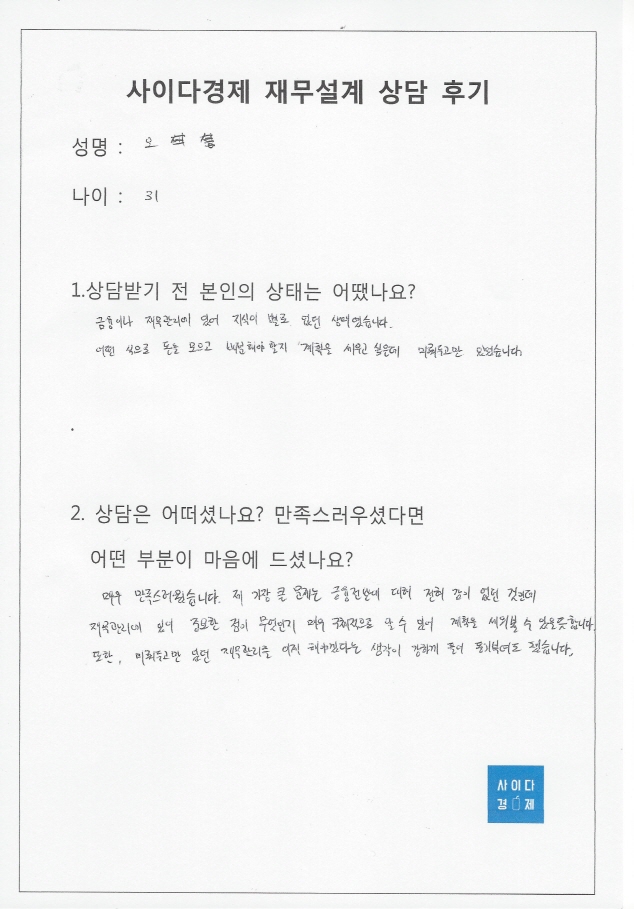 사이다경제 재무설계 상담 후기
성명 : 오
나이 : 31
1.상담받기 전 본인의 상태는 어땠나요?
금융이나 재무관리에 있어 지식이 별로 없던 상태였습니다.
어떤 식으로 돈을 모으고 해야할지 계획을 세우고 싶은데 미뤄두고만 있었습니다
2. 상담은 어떠셨나요? 만족스러우셨다면
어떤 부분이 마음에 드셨나요?
매우 만족스러웠습니다. 제 가장 큰 문제는 금융전반에 대해 전혀 감이 없던 것인데
재무관리에 있어 중요한 점이 무엇인지 매우 구체적으로 알 수 있어 계획을 세워볼 수 있을듯합니다.
또한, 미뤄두고만 있던 재무관리를 이제 해야겠다는 생각이 강하게 들어 동기부여도 됐습니다.
사이다
경제